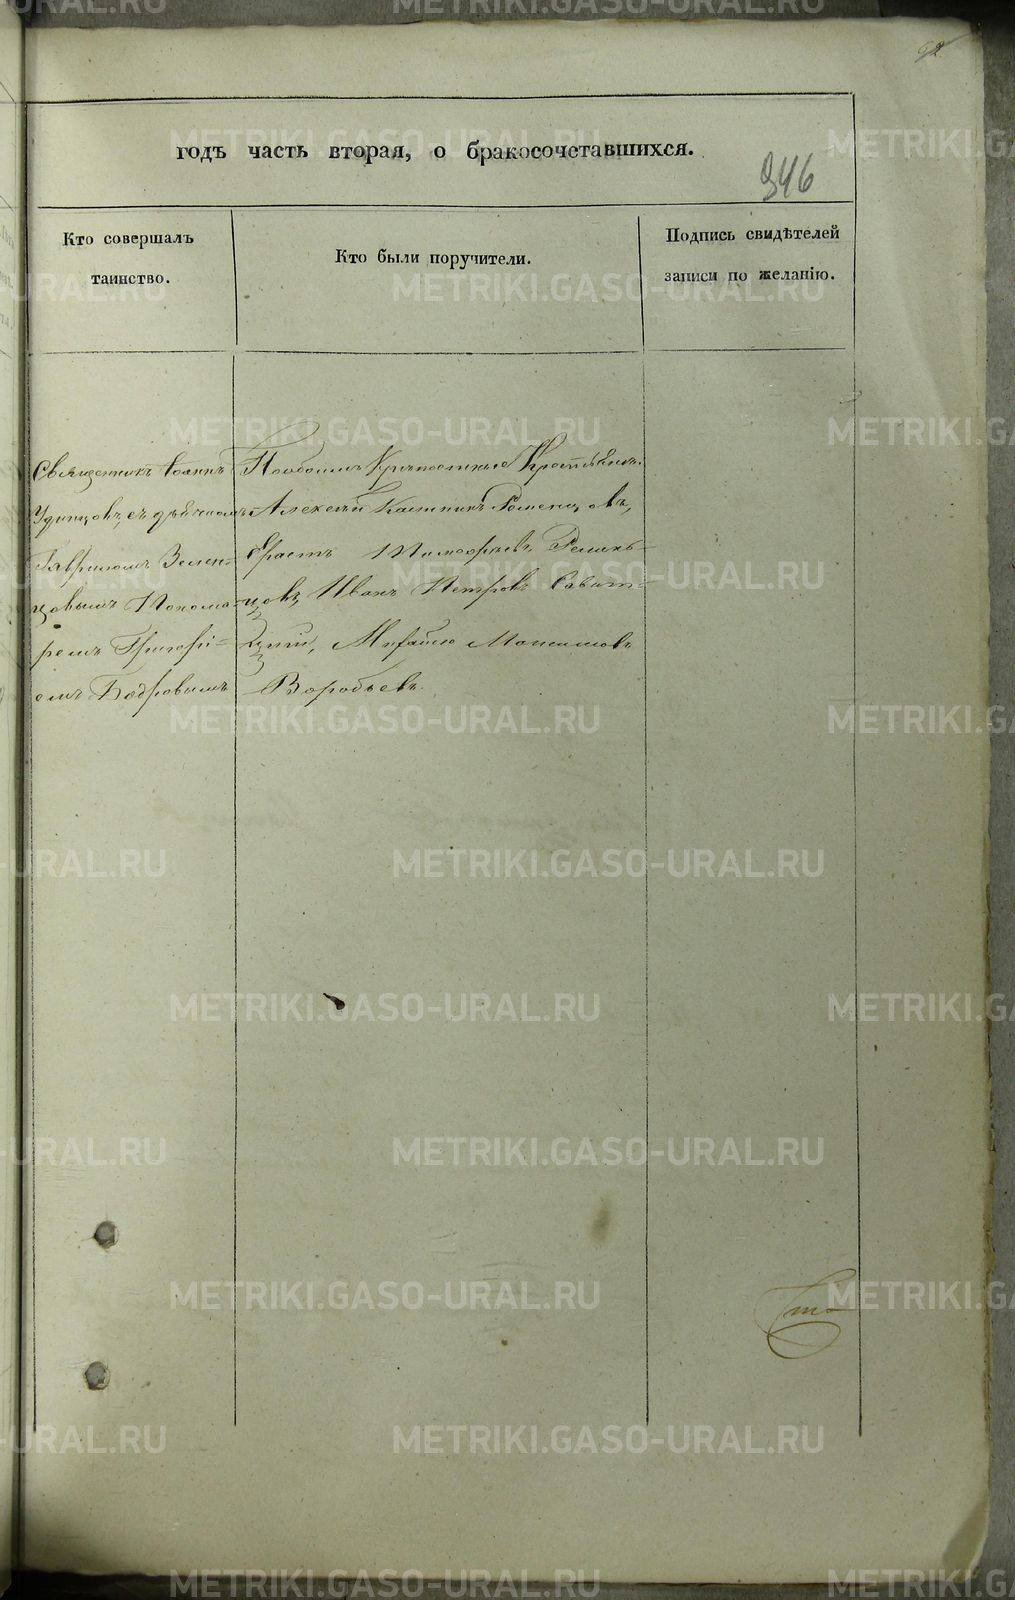 62
годъ часть вторая, о бракосочетавшихся.
346
Кто совершалъ
таинство.
Кто были поручители.
Подпись свидѣтелей
записи по желанію.
Священникъ Іоаннъ
Удинцовъ, съ дьячкомъ
Гавриломъ Зелен-
цовымъ Понома-
ремъ Григорі-
емъ Бобровымъ
Пообоимъ Крѣпостные
Алексѣй
Ерастъ Тимофѣевъ
цовъ Иванъ Петровъ
Михайло Максимовъ
Воробьевъ.
METRIKI.GASO-URAL.RU